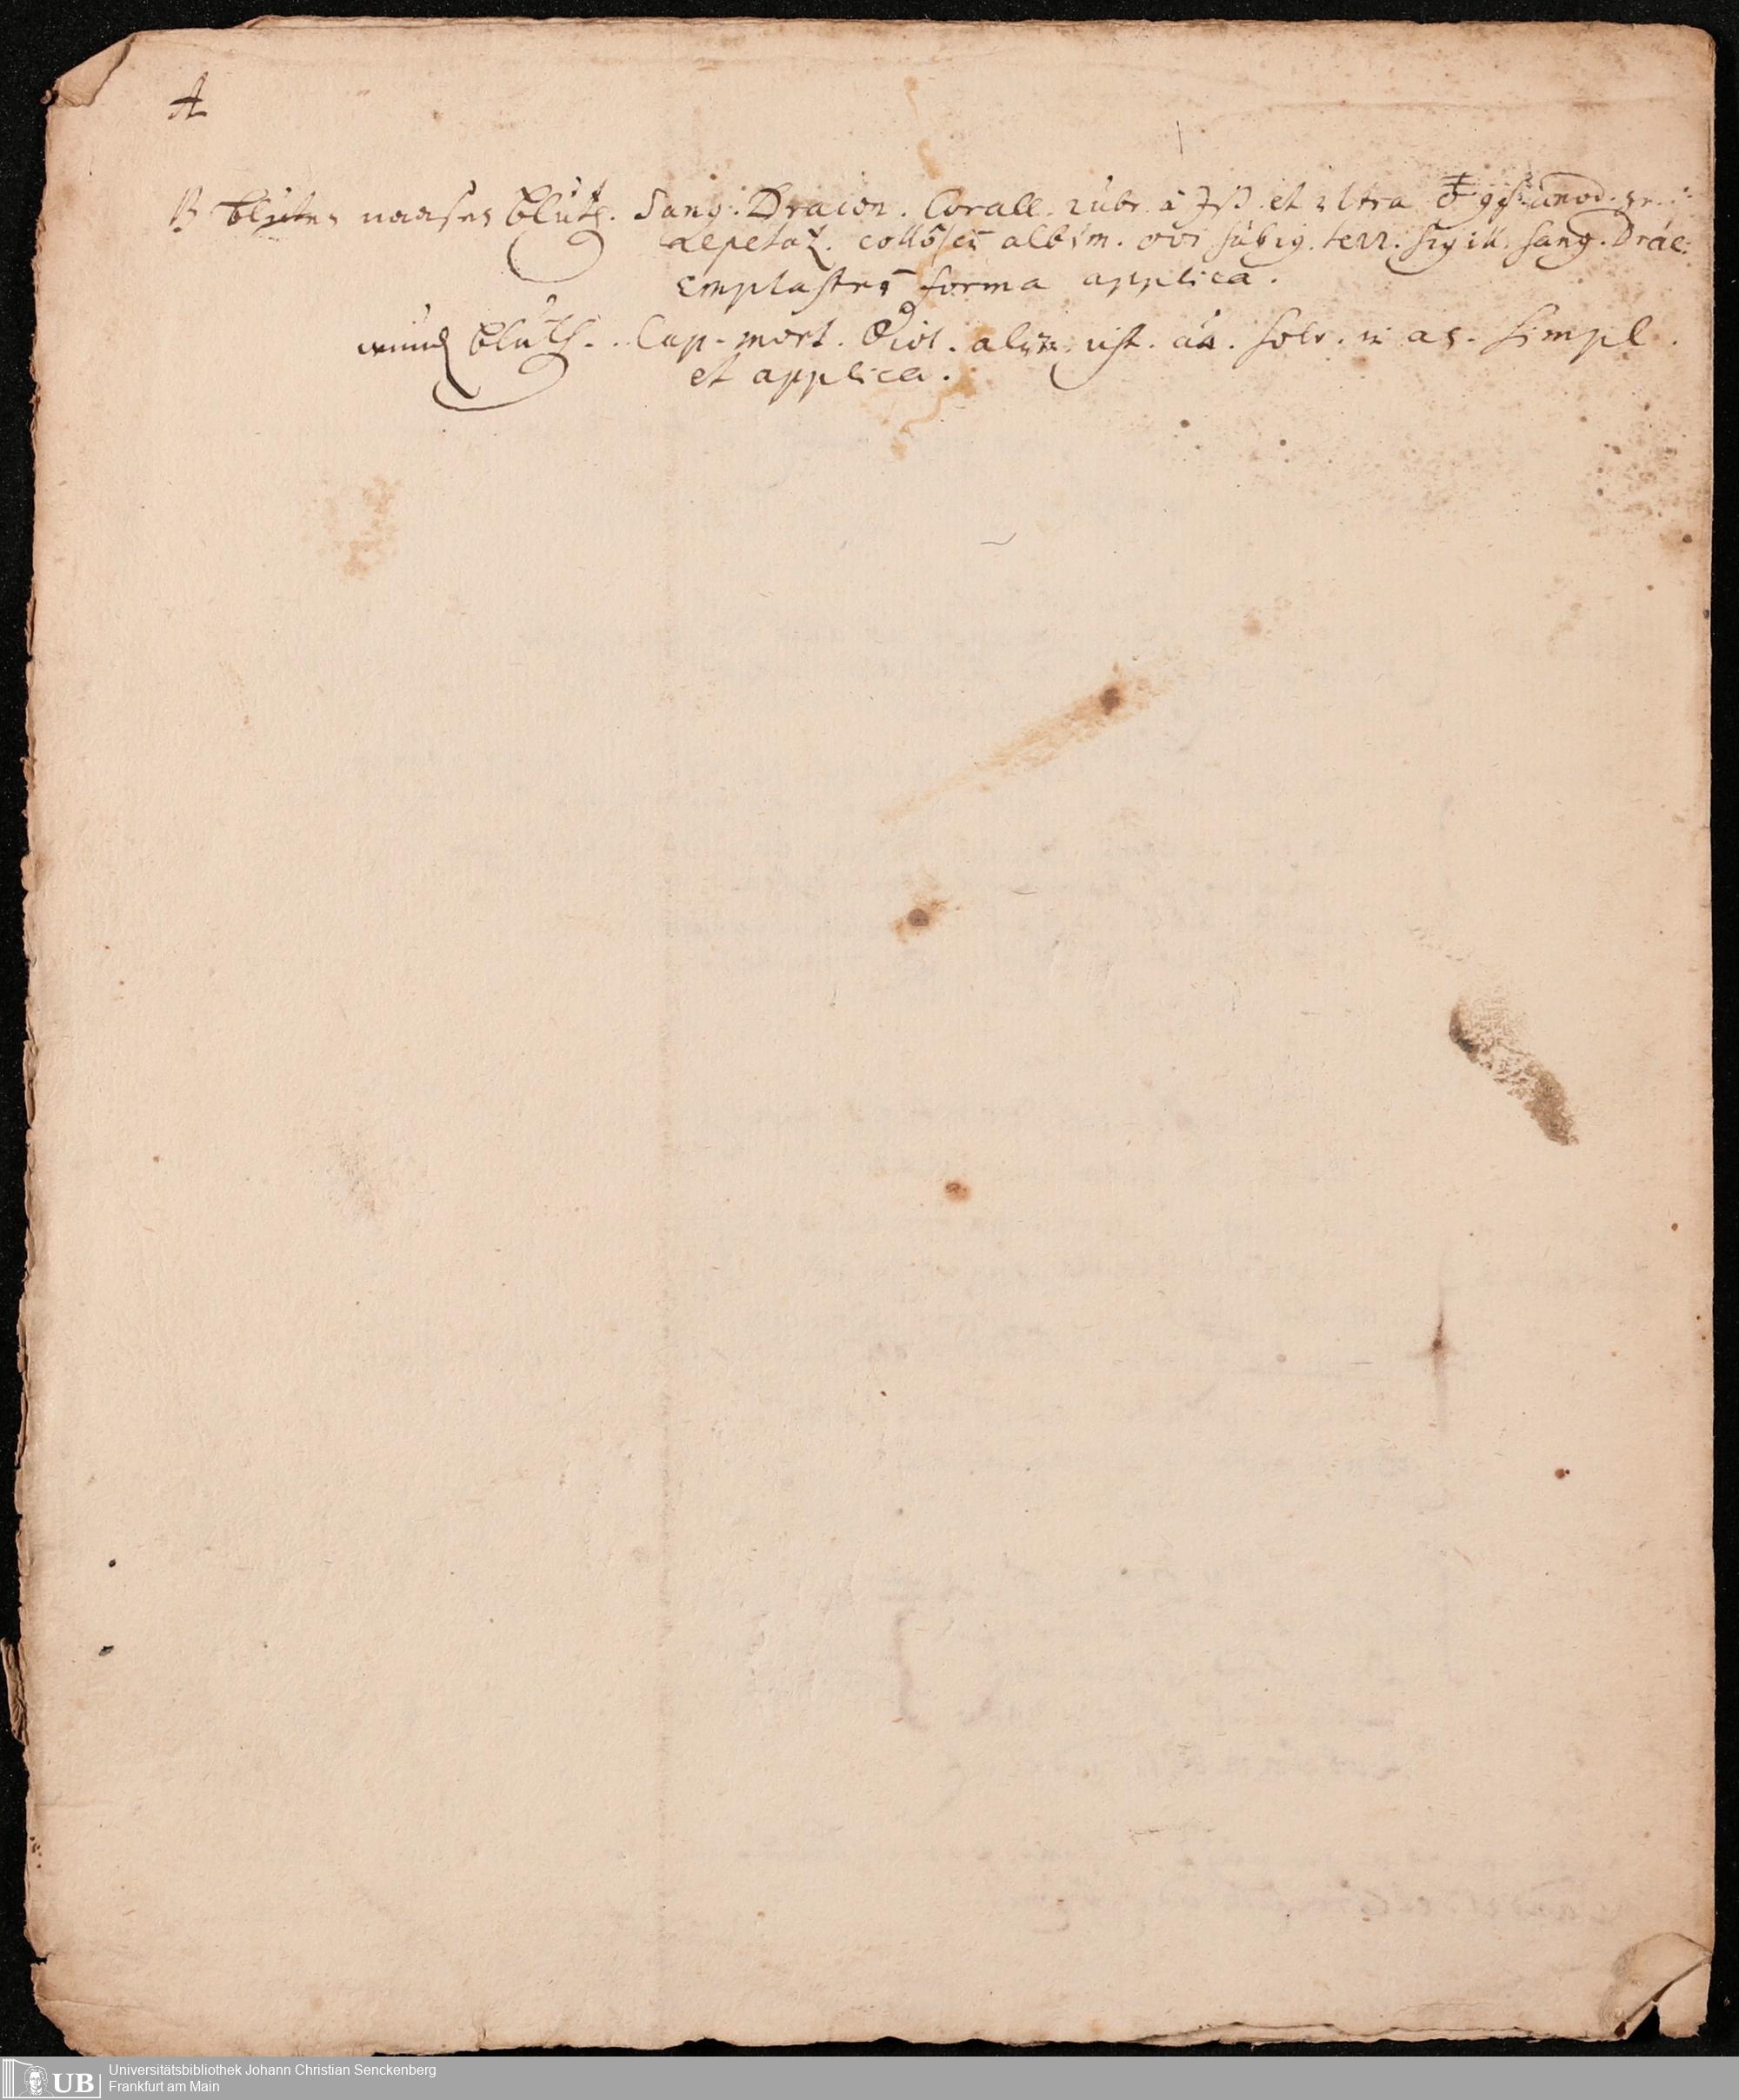 A
B bluten naasen blut. Sang. Dracon. Corall. rubr. a ʒß. et ultra anod. gr.
Repetat. collo albūm. ovi subig. terr. sigill. sang. Drac:
emplastri forma applica.
wund blut. Cap. mort. Viol. alum. ust. an. solv. in aq. simpl.
et applica.
UB
Universitätsbibliothek Johann Christian Senckenberg
Frankfurt am Main